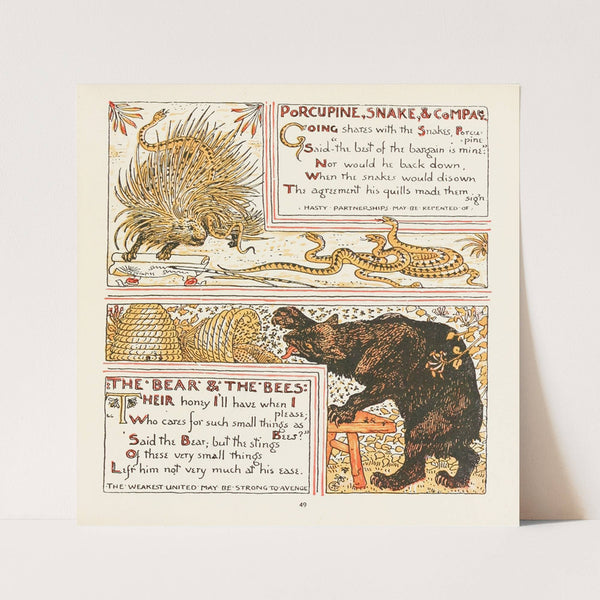 PORCUPINE, SNAKE, & COMPAY.
GOING shares with the Snakes, Porcu-
pine
Said "the best of the bargain is mine:"
Nor would he back down,
When the snakes would disown
The agreement his quills made them
sign
HASTY PARTNERSHIPS MAY BE REPENTED OF.
THE BEAR & THE BEES:
"THEIR honey I'll have when I
please;
Who cares for such small things as
Bees?"
Said the Bear; but the stings
Of these very small things
Left him not very much at his ease.
THE WEAKEST UNITED MAY BE STRONG TO AVENGE
49